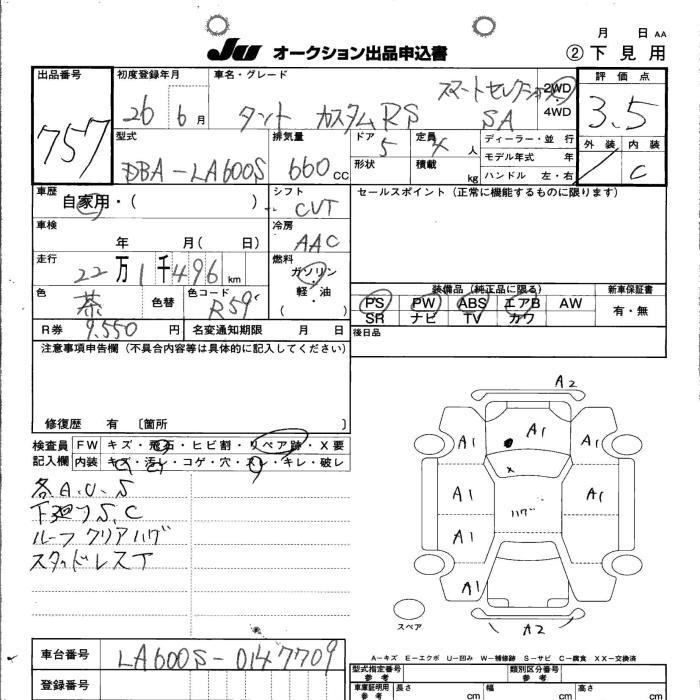 月 日 AA
JU オークション出品申込書 ②下見用
出品番号 757
初度登録年月 26 6月
車名・グレード タント カスタムRS スマートセレクション SA
2WD
4WD
評価点 3.5
外装 内装 C
型式 DBA-LA600S
排気量 660cc
ドア 5
形状
定員 4人
積載 kg
ディーラー・並行
モデル年式 年
ハンドル 左・右
車歴 自家用・( )
シフト CVT
セールスポイント (正常に機能するものに限ります)
車検 年 月( 日)
冷房 AAC
走行 22万1千496km
燃料 ガソリン
軽・油
( )
色 茶 色替
色コード R59
装備品 (純正品に限る) 新車保証書
PS PW ABS エアB AW 有・無
SR ナビ TV カワ
R券 9,550円
名変通知期限 月 日
後日品
注意事項申告欄 (不具合内容等は具体的に記入してください)
修復歴 有 〔箇所 〕
検査員 FW キズ・飛石・ヒビ割・リペア跡・X要
記入欄 内装 キズ・汚レ・コゲ・穴・スレ・キレ・破レ
各A.U.S
下廻りS,C
ルーフ クリアハゲ
スタッドレスT
A2
A1 A1 A1
x
A1 ハゲ A1
A1
A1 A1
A2
スペア
A-キズ E-エクボ U-凹み W-補修跡 S-サビ C-腐食 XX-交換済
車台番号 LA600S-0147709
登録番号
型式指定番号 参考
類別区分番号 参考
車車証明用 参考 長さ cm 幅 cm 高さ cm